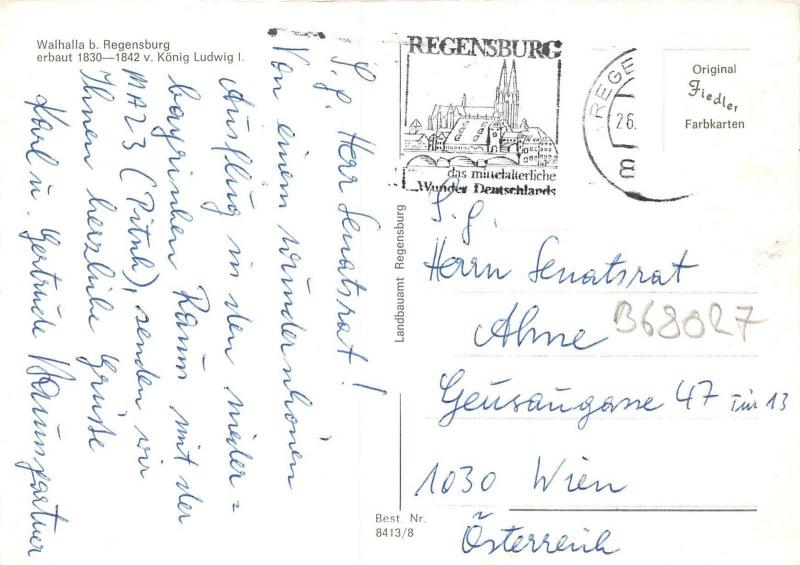 Walhalla b. Regensburg
erbaut 1830—1842 v. König Ludwig I.
S.g. Herr Senatsrat!
Von einem wunderschönen
Ausflug in den nieder=
bayrischen Raum mit der
MA23 (), senden wir
Ihnen herzliche Grüße
Karl u. Gertrude Baumgartner
REGENSBURG
das mittelalterliche
Wunder Deutschlands
REGE
26.
8
Original
Fiedler
Farbkarten
Landbauamt Regensburg
S.g.
Herrn Senatsrat
Ahne
B68027
Geusaugasse 47 Tür 13
1030 Wien
Österreich
Best. Nr.
8413/8